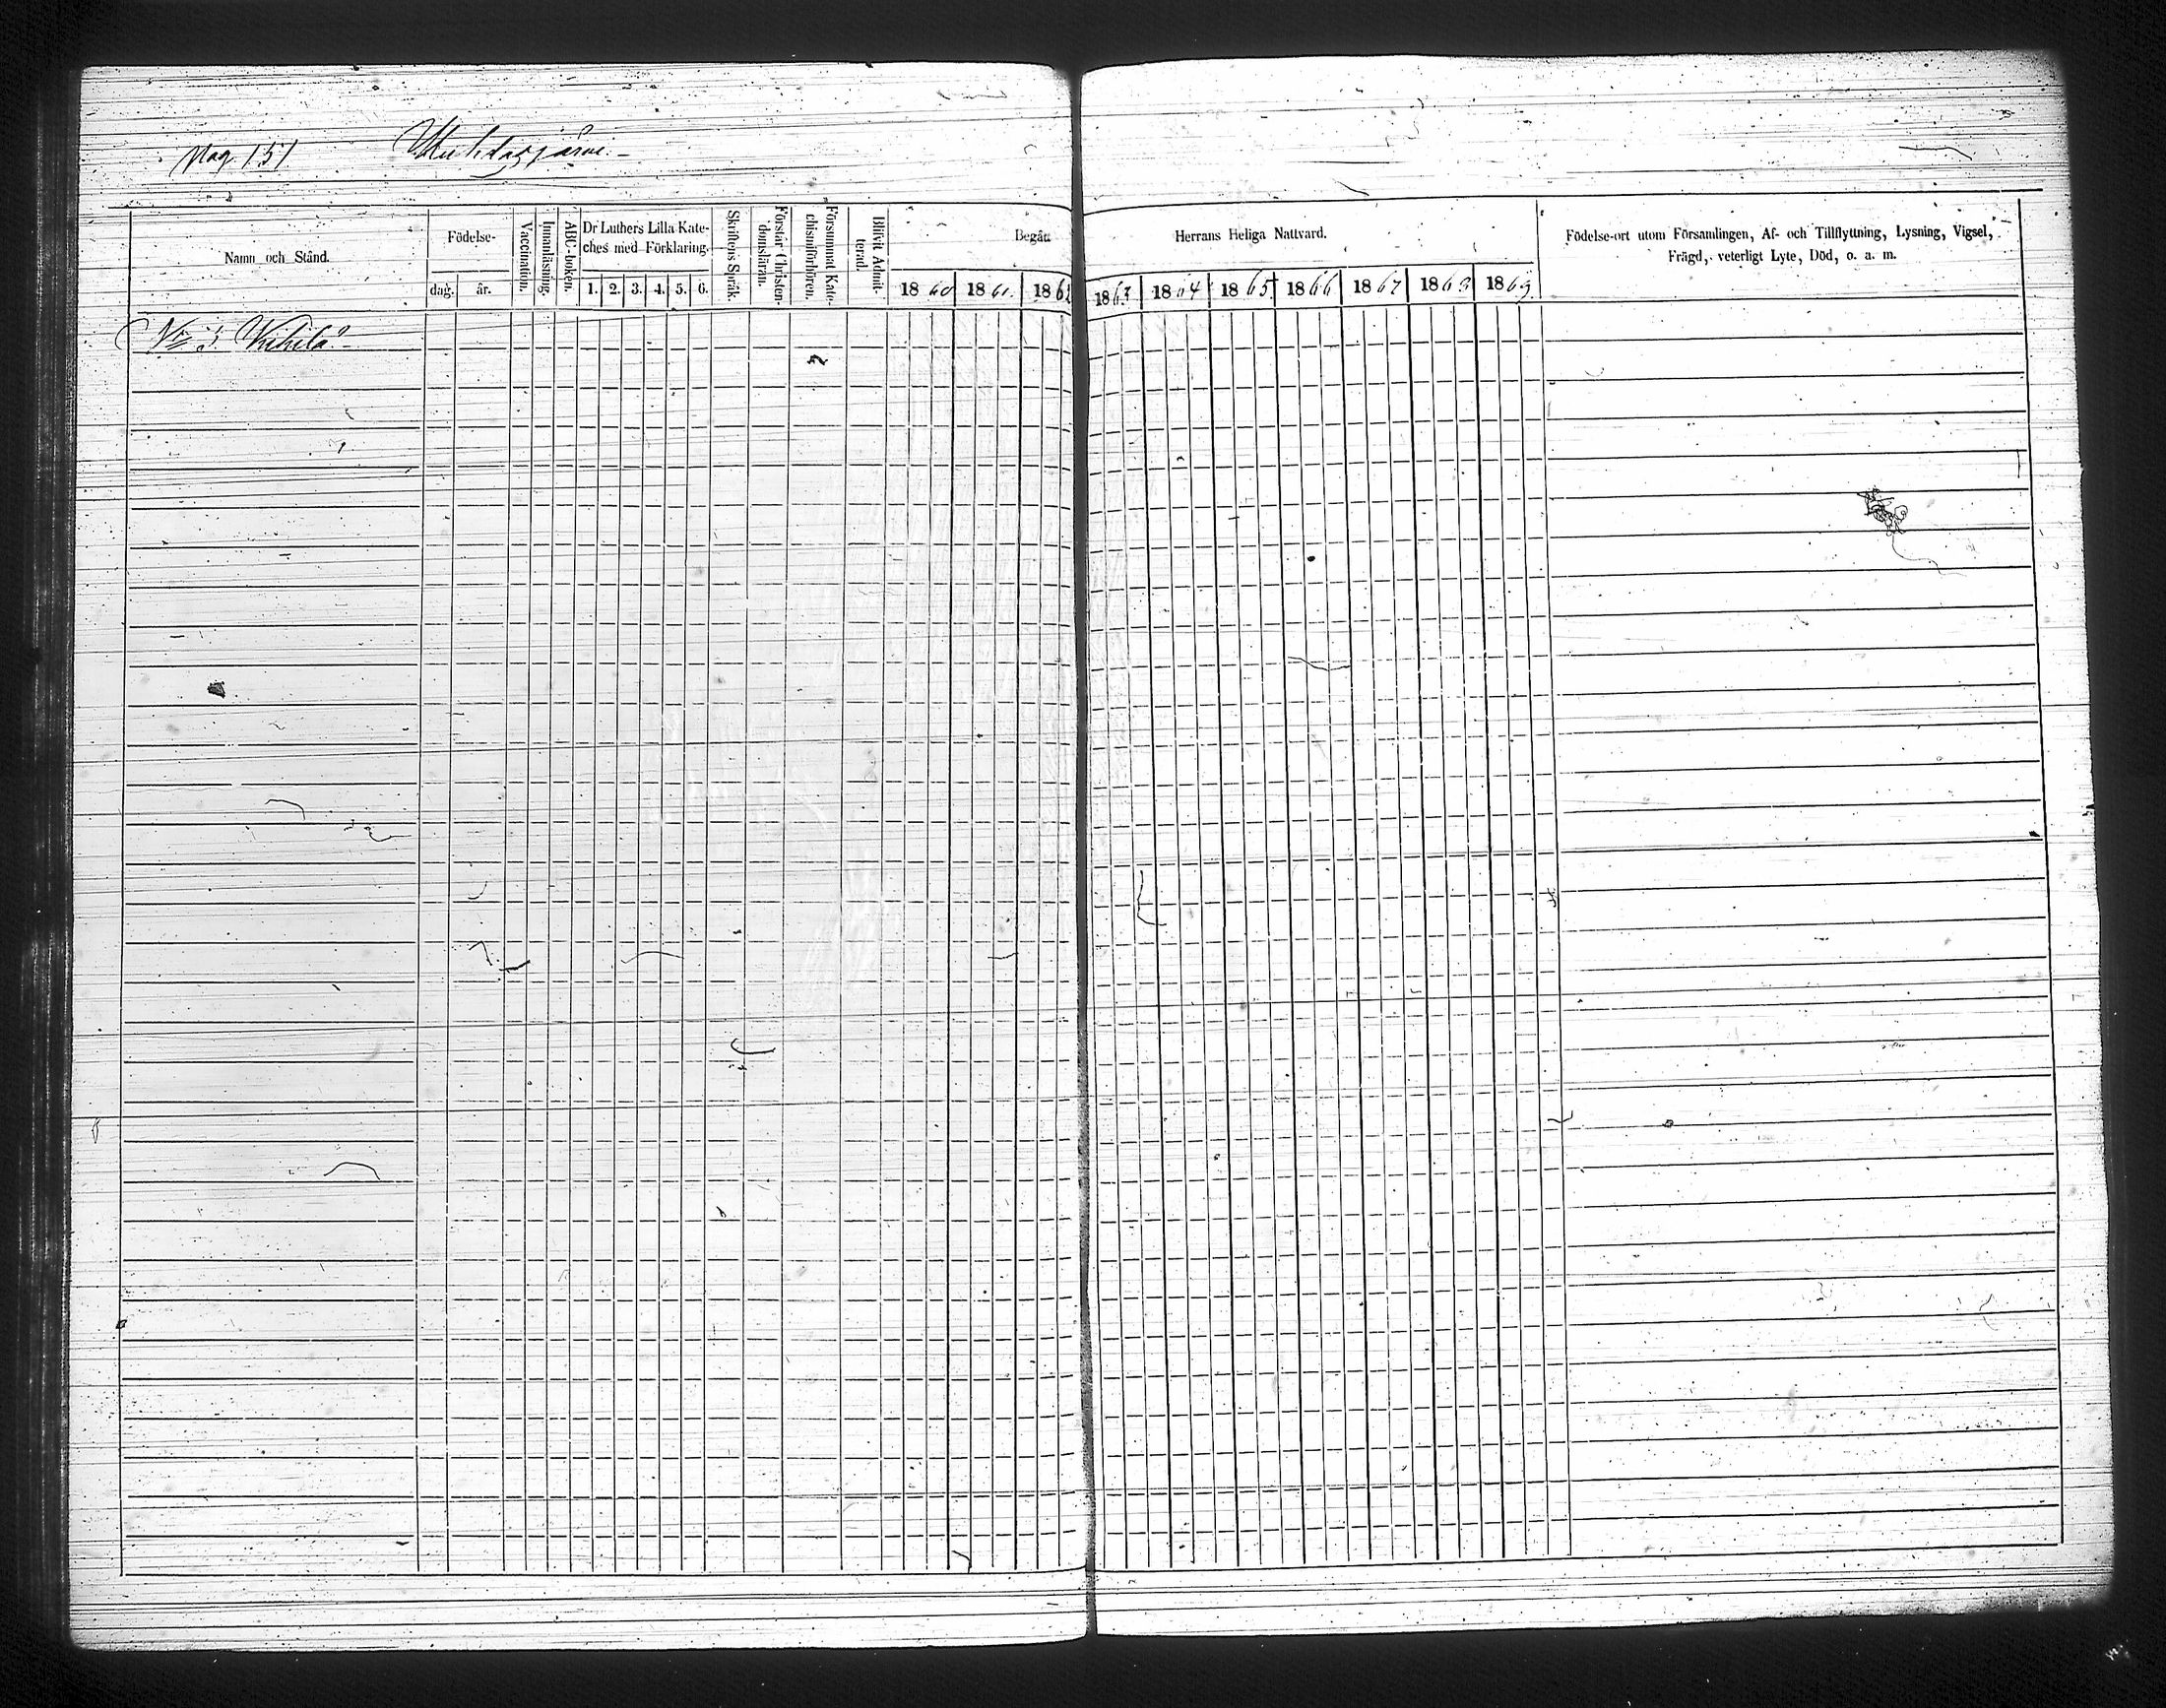 Pag 151
Namn och Stånd.
Födelse-
dag.
år.
Vaccination.
Innanläsning.
ABC-boken.
Dr Luthers Lilla Kate-
ches med Förklaring.
1. 2. 3. 4. 5. 6.
Skriftens Språk.
Förstår Christen-
domsläran.
Försummat Kate-
chismiförhören.
Blifvit Admit-
terad.
Begått Herrans Heliga Nattvard.
1860 1861. 1862 1863 1864 1865 1866 1867 1868 1869.
Födelse-ort utom Församlingen, Af- och Tillflyttning, Lysning, Vigsel,
Frägd, veterligt Lyte, Död, o. a. m.
No 3